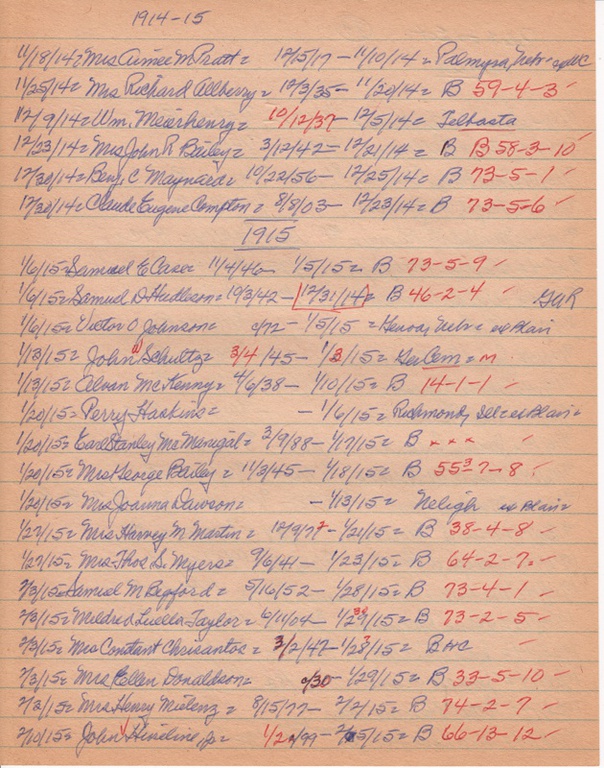 1914-15
11/18/14= Mrs Aimee M Pratt= 12/5/17-11/10/14= Palmyra, Nebr
11/25/14= Mrs Richard Allberry= 12/3/35- 11/20/14= B 59-4-3
12/9/14= Wm. Meierhenry= 10/12/37- 12/5/14= Telbasta
12/23/14= Mrs John R Bailey= 3/12/42- 12/21/14= B B 58-3-10
12/30/14= Benj. C Maynard= 10/22/56- 12/25/14= B 73-5-1
12/30/14= Claude Eugene Compton= 8/8/03- 12/23/14= B 73-5-6
1915
1/6/15= Samuel E Case= 11/4/46- 1/5/15= B 73-5-9
1/6/15= Samuel D Hudleson= 10/3/42- 12/31/14= B 46-2-4 GAR
1/6/15= Victor O Johnson= c/72- 1/5/15= Genoa, Nebr= ex Blair
1/13/15= John Schultz= 3/4/45- 1/3/15= Ger Cem= M
1/13/15= Alvan McKenny= 4/6/38- 1/10/15= B 14-1-1
1/20/15= Perry Haskins= - 1/6/15= Richmond, ex Blair=
1/20/15= Earl Stanley McManigal= 2/9/88- 1/17/15= B x x x
1/20/15= Mrs George Bailey= 11/3/45- 1/18/15= B 55-7-8
1/20/15= Mrs Joanna Dawson= - 1/13/15= Neligh ex Blair=
1/27/15= Mrs Harvey M. Martin= 12/9/77- 1/21/15= B 38-4-8
1/27/15= Mrs Thos S. Myers= 9/6/41- 1/23/15= B 64-2-7
2/3/15= Samuel M Bepford= 5/16/52- 1/28/15= B 73-4-1
2/3/15= Mildred Luella Taylor= 6/11/04- 1/29/15= B 73-2-5
2/3/15= Mrs Constant Chrisantos= 3/2/47- 1/28/15= B
2/3/15= Mrs Ellen Donaldson= c/30- 1/29/15= B 33-5-10
2/3/15= Mrs Henry Mulenz= 8/15/77- 2/2/15= B 74-2-7
2/10/15= John Hineline, Jr= 1/2/99- 2/5/15= B 66-13-12